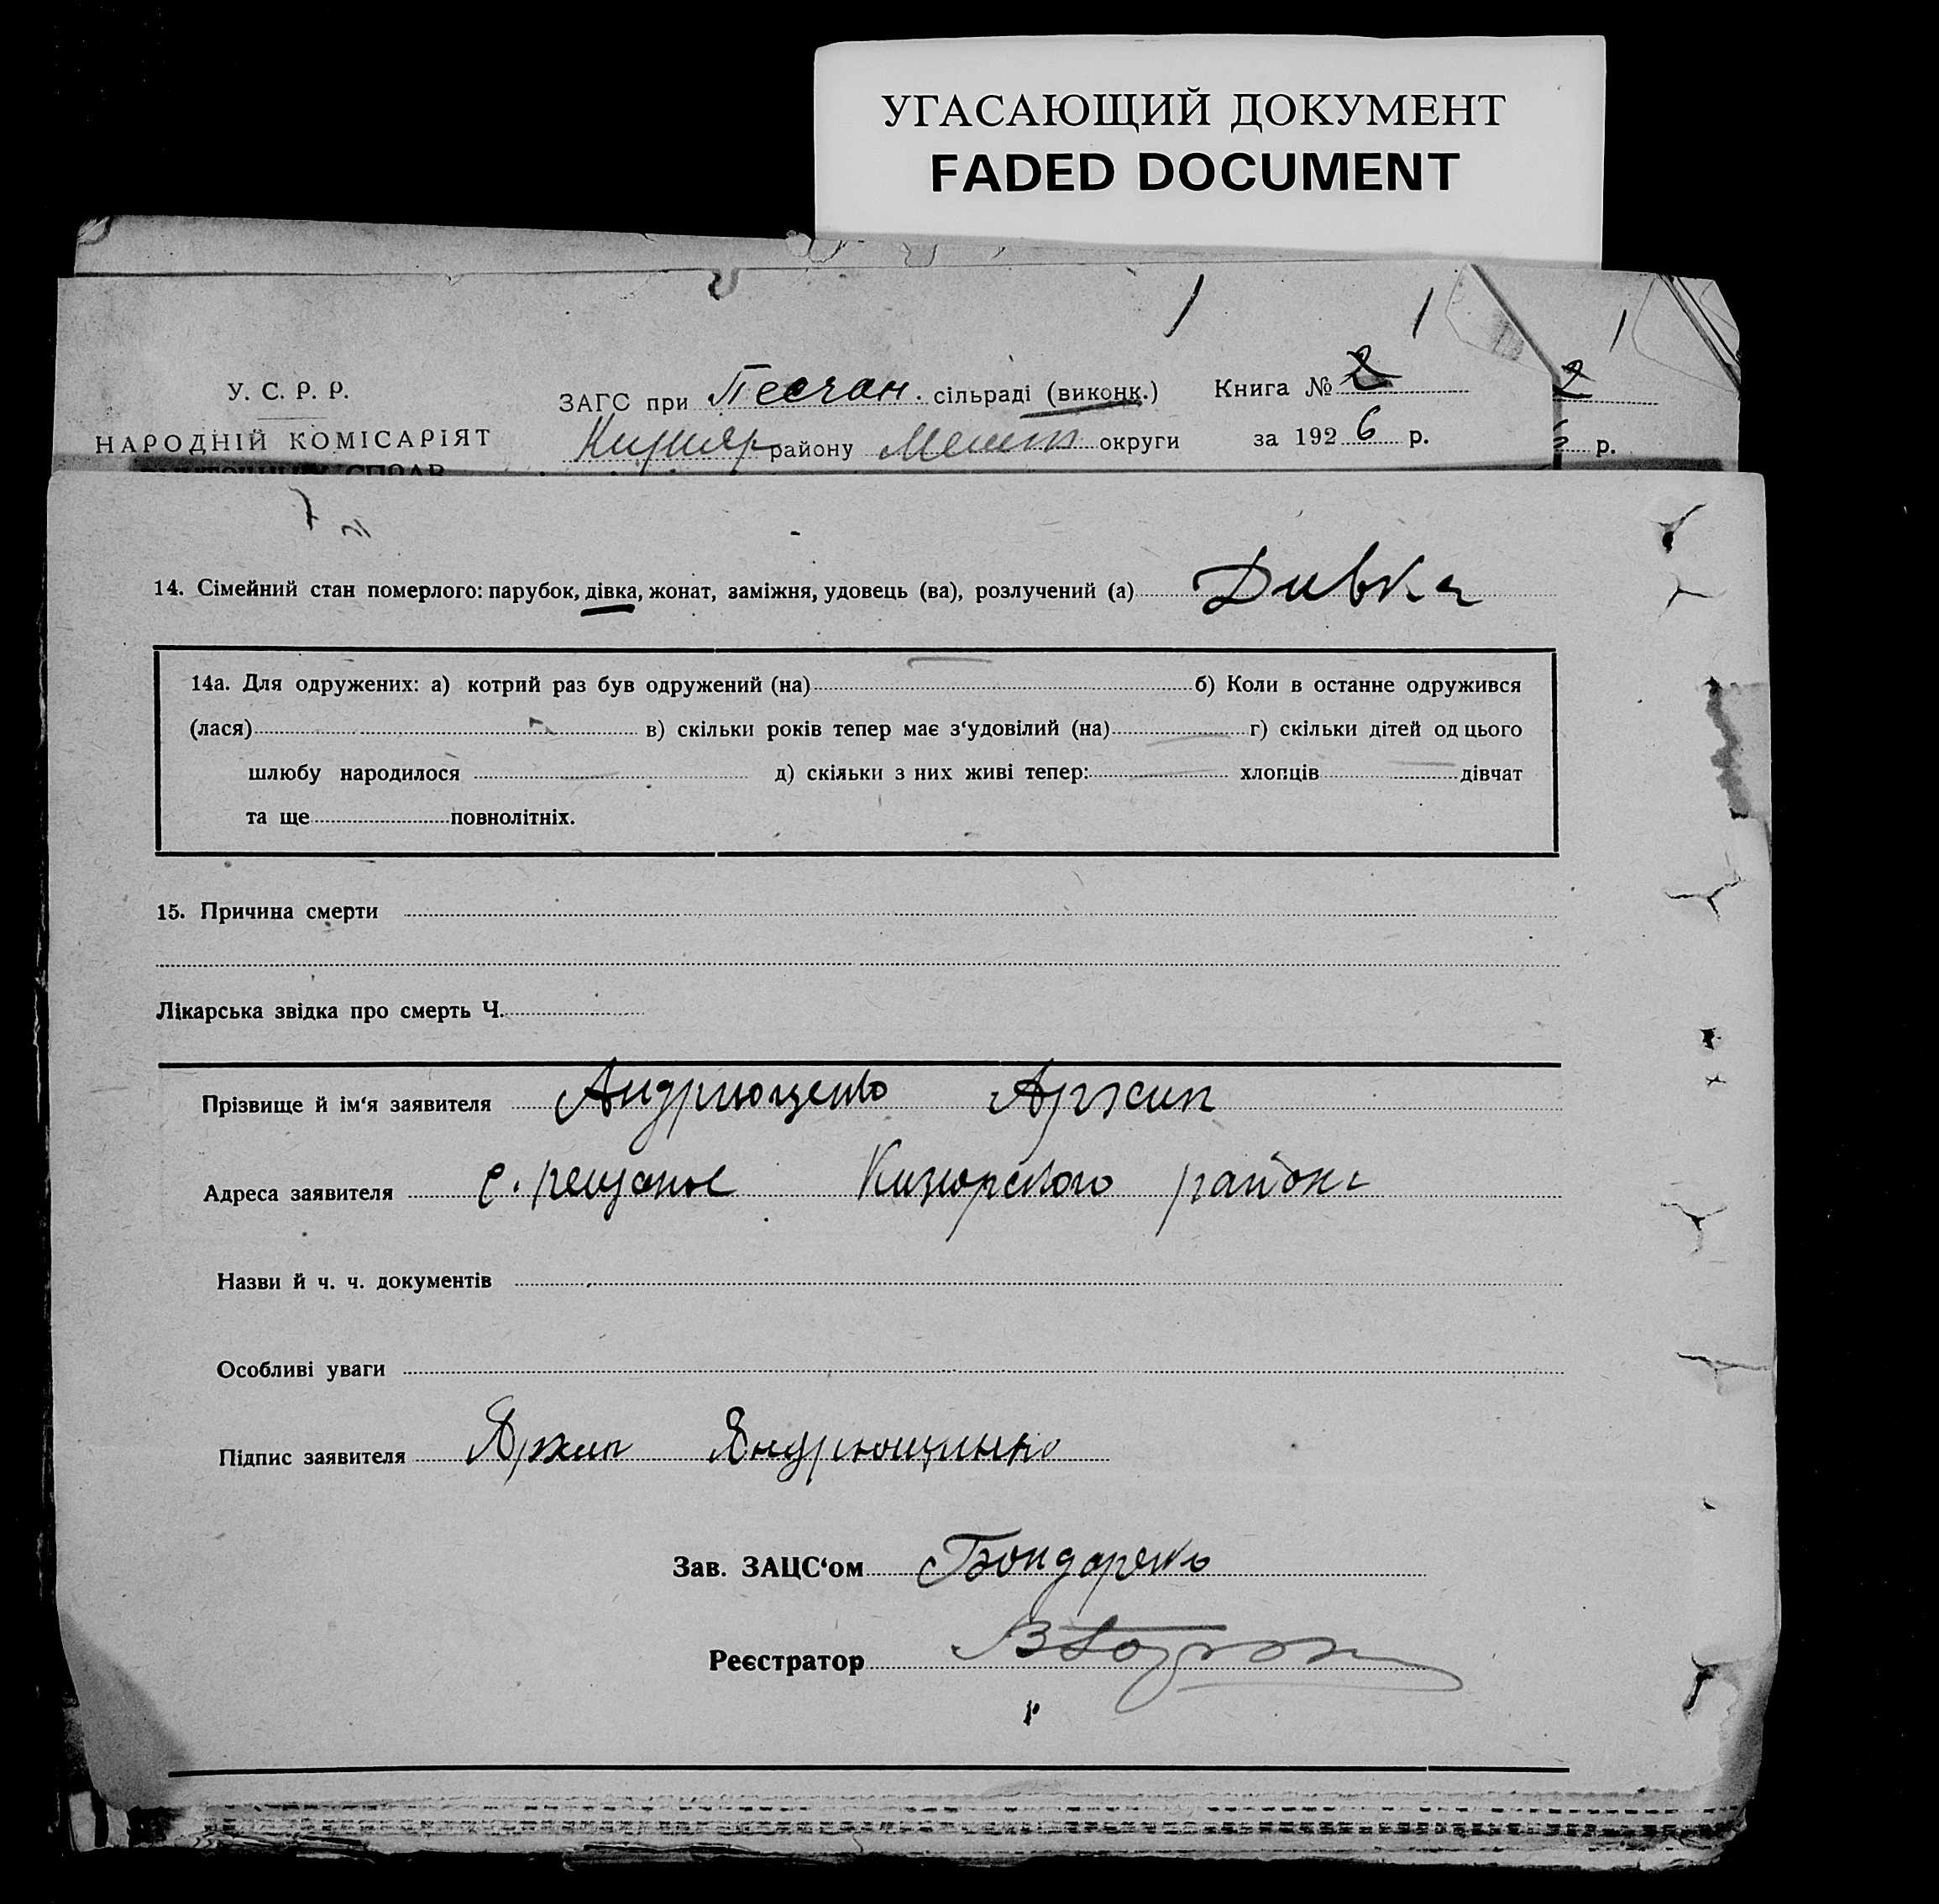 УГАСАЮЩИЙ ДОКУМЕНТ
FADED DOCUMENT
У. С. Р. Р.
НАРОДНІЙ КОМІСАРІЯТ
ЗАГС при Песчан. сільраді (виконк.) Книга № 2
району Мелит округи за 1926 р.
2
р.
14. Сімейний стан померлого: парубок, дівка, жонат, заміжня, удовець (ва), розлучений (а) Дивка
14а. Для одружених: а) котрий раз був одружений (на) б) Коли в останне одружився
(лася) в) скільки років тепер має з‘удовілий (на) г) скільки дітей од цього
шлюбу народилося д) скільки з них живі тепер: хлопців дівчат
та ще повнолітніх.
15. Причина смерти
Лікарська звідка про смерть Ч.
Прізвище й ім‘я заявителя Андрющенко Архип
Адреса заявителя с. района
Назви й ч. ч. документів
Особливі уваги
Підпис заявителя Архип Яндрющинко
Зав. ЗАЦС‘ом Бондаренко
Реєстратор